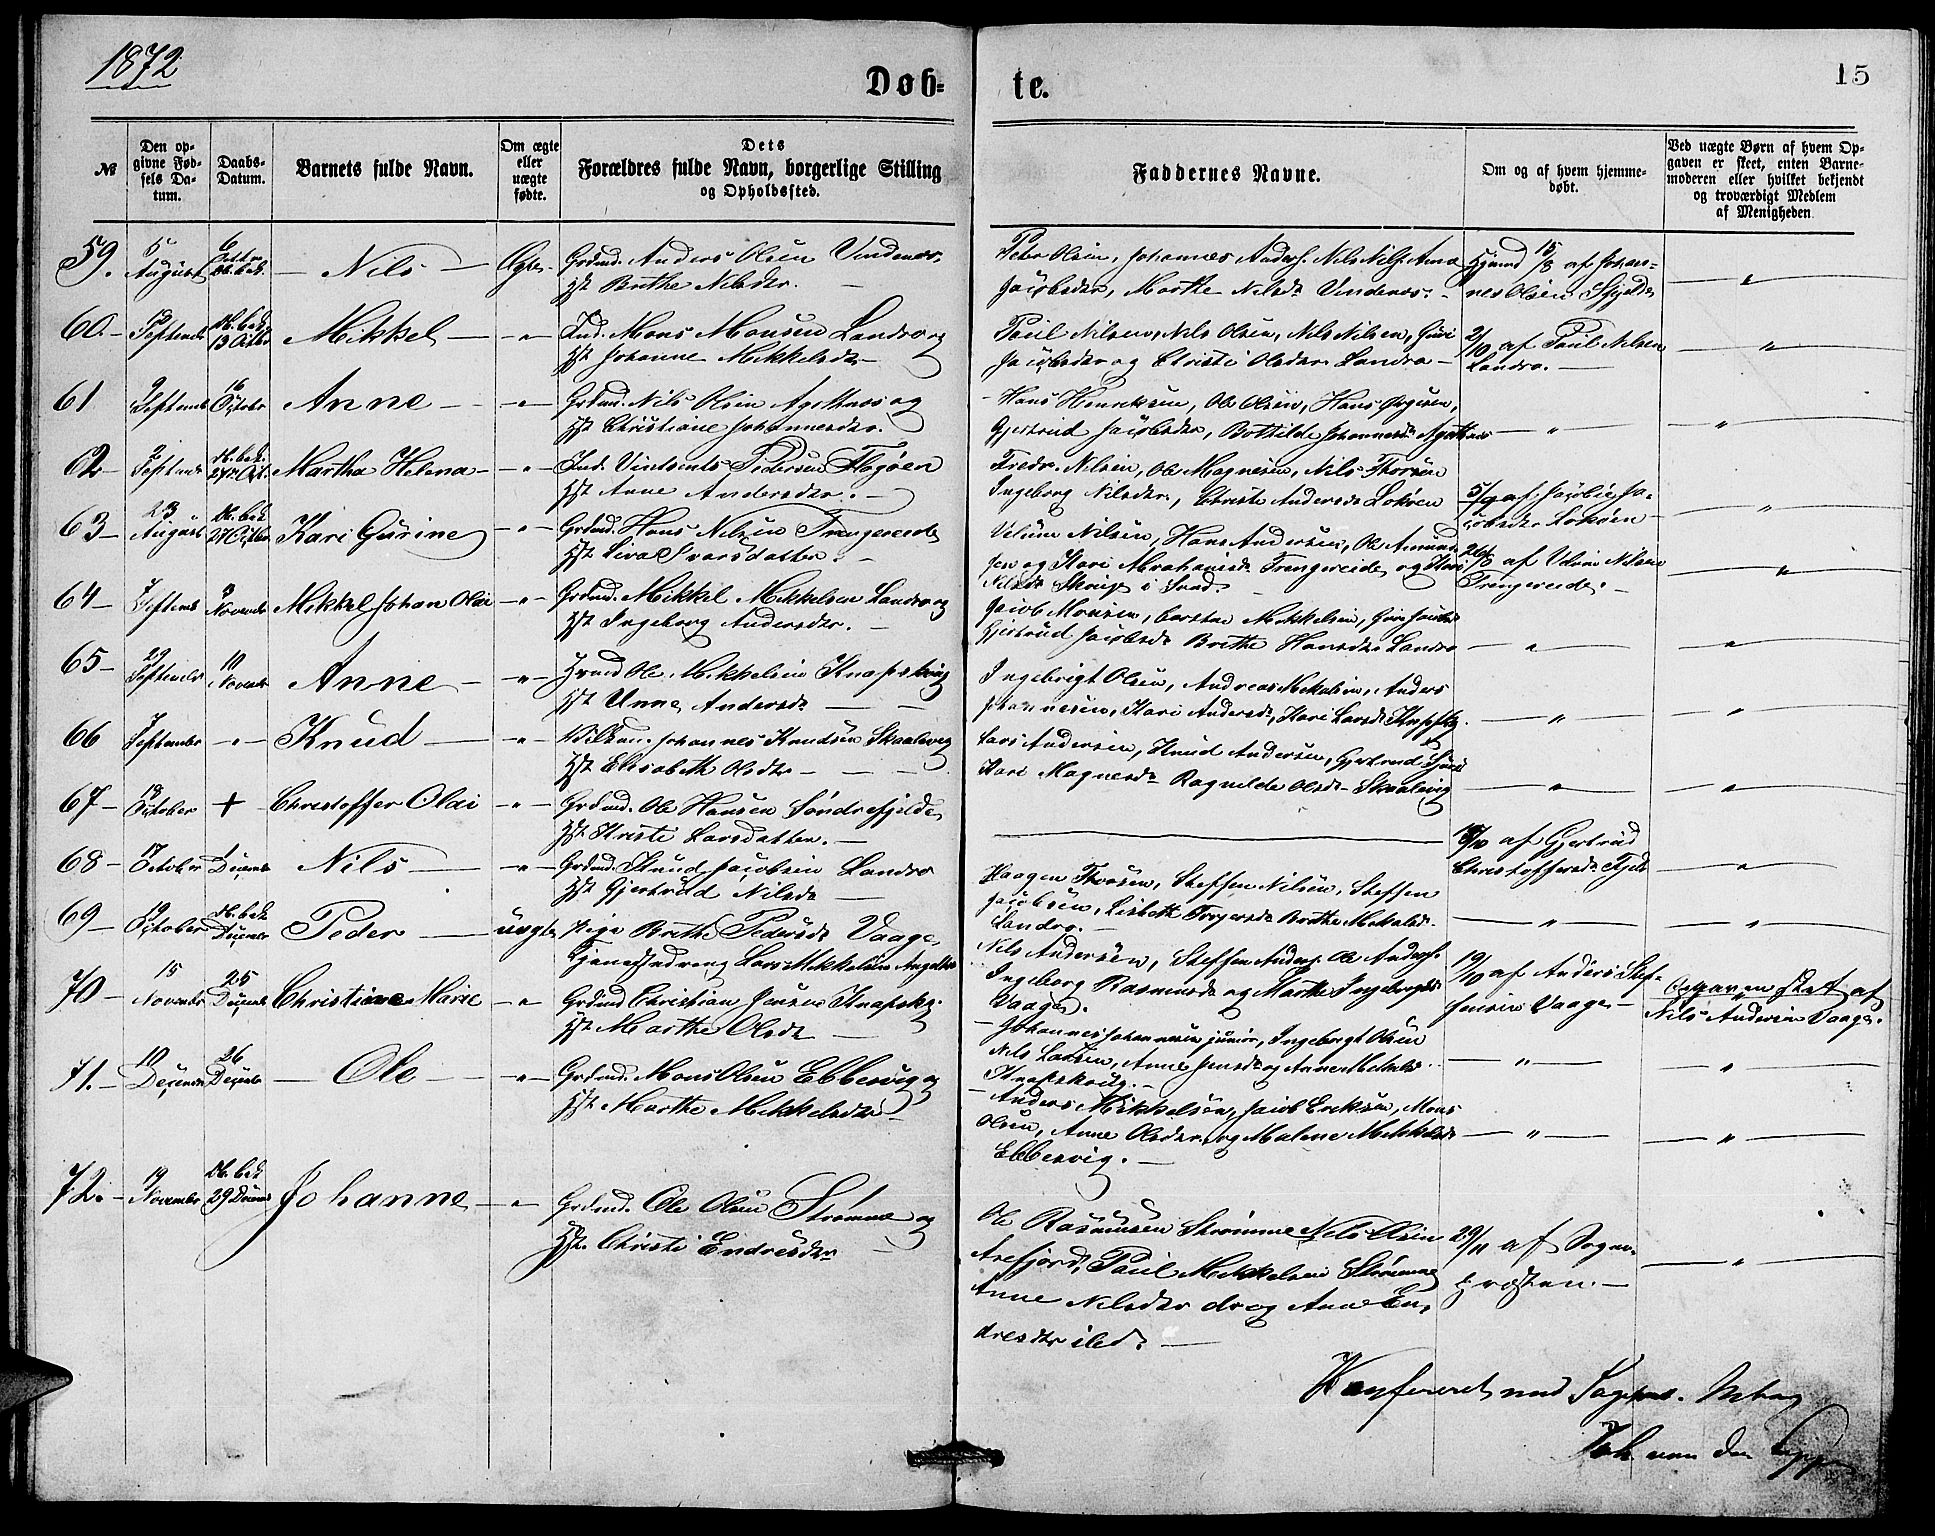 1872
Døb-
te.
15
№
Den op-
givne Fød-
sels Da-
tum.
Daabs-
Datum.
Barnets fulde Navn.
Om ægte
eller
uægte
fødte.
Dets
Forældres fulde Navn, borgerlige Stilling
og Opholdssted.
Faddernes Navne.
Om og af hvem hjemme-
døbt.
Ved uægte Børn af hvem Op-
gaven er skeet, enten Barne-
moderen eller hvilket bekjendt
og troværdigt Medlem
af Menigheden
59. 5 August Nils Ægte Grdmd. Anders Olsen Vindenes
Hst Brithe Nilsdtr.
Peter Olsen, Johannes Anders. Nils Nils. Anna
Jacobsdtr, Marthe Nilsdr Vindenes.
Hjemd 15/8 af Johan-
nes Olsen
60. Septembr Db. bek 13 Octbr Mikkel Ind. Mons Monsen Landro og
Hst Johanne Mikkelsdtr
Paul Nilsen, Nils Olsen, Nils Nilsen, Guri
Jacobsdtr og Christi Olsdtr Landro
2/10 af Paul Nilsen
Landro.
61 9 Septembr 16 Octobr Anne Grdmd. Nils Olsen Agothnes og
Hst Christiane Johannesdtr.
Hans Henriksen, Ole Olsen, Hans
Gjertrud Jacobsdtr, Bothilde Johannesdr
62 2 Septembr Db. bek. 27 Oct. Martha Helena Ind. Vintents Pedersen Flogøen
Hst Anne Andersdtr.
Fredr. Nilsen, Ole Magnesen, Nils Thorsen
Ingeborg Nilsdtr, Christi Andersdr Lokøen
5/9 af Ja-
cobsdtr Lokøen
63 23 August Db. bek 27 Octbr Kari Gurine Grdmd. Hans Nilsen Trengereide
Hst Siva Ivarsdatter.
Nilsen, Hans Andersen, Ole Amund-
sen og Kari Abrahamsdr Trengereide og
Nilsdr Skoge i Sund.
26/8 af Nilsen
Trengereide.
64 7 Septembr 3 Novembr Mikkel Johan Olai Grdmd. Mikkel Mikkelsen Landro og
Hst Ingeborg Andersdtr.
Jacob Monsen, Carsten Mikkelsen, Guri Jacobsdr
Gjertrud Jacobsdr Brithe Hansdtr Landro
65 29 Septembr 10 Novembr Anne Ole Mikkelsen Knapskoug
Hst Unne Andersdr
Ingebrigt Olsen, Andreas Mikkelsen, Anders
Johannesen, Kari Andersdr, Kari Larsdr
66 7 Septembr Knud Johannes Knudsen Skaalevig
Hst Elisabeth Olsdtr
Lars Andersen, Knud Andersen, Gjertrud
Kari Magnesdr Ragnilde Olsdr Skaalevig
67 18 October + Christoffer Olai Grdmd. Ole Hansen Søndrefjelde
Hst Christi Larsdatter.
/10 af Gjertrud
Christoffersdr
68 17 October 1 Decembr Nils Grdmd. Knud Jacobsen Landro
Hst Gjertrud Nilsdr
Haagen Thorsen, Steffen Nilsen, Steffen
Jacobsen, Lisbeth Brithe Mikkelsdr.
Landro.
69 19 October Db. bek Decembr Peder uægte Pige Brithe Pedersdr Vaage,
Lars Mikkelsen
Nils Andersen, Steffen Anders. Ole Anders.
Ingeborg Rasmusdr og Marthe Ingebrigtsdr
Vaage.
19/10 af Anders Stef-
fensen Vaage
Opgaven skeet af
Nils Andersen Vaage.
70 15 Novembr 25 Decembr Christine Marie Grdmd Christian Jensen Knapskg.
Hst Marthe Olsdr
Johannes Johannesen junior, Ingebrigt Olsen
Nils Larsen, Anne Jensdr og Anne Mikkelsdr.
Knapskoug.
71. 10 Decembr 26 Decembr Ole Grdmd. Mons Olsen Ebbesvig og
Hst Marthe Mikkelsdtr
Anders Mikkelsen, Jacob Eriksen, Mons
Olsen, Anne Olsdtr, og Malene Mikkelsdr
Ebbesvig.
72. 19 Novembr Db. bek 29 Decembr Johanne Grdmd. Ole Olsen Strømme og
Hst. Christi Endresdtr
Ole Rasmusen Strømme Nils Olsen
Arefjord, Paul Mikkelsen Strømme
Anne Nilsdtr do og Anne En-
dresdtr ibd.
29/11 af Sogne-
præsten.
Konfereret med
Joh. von der Lippe